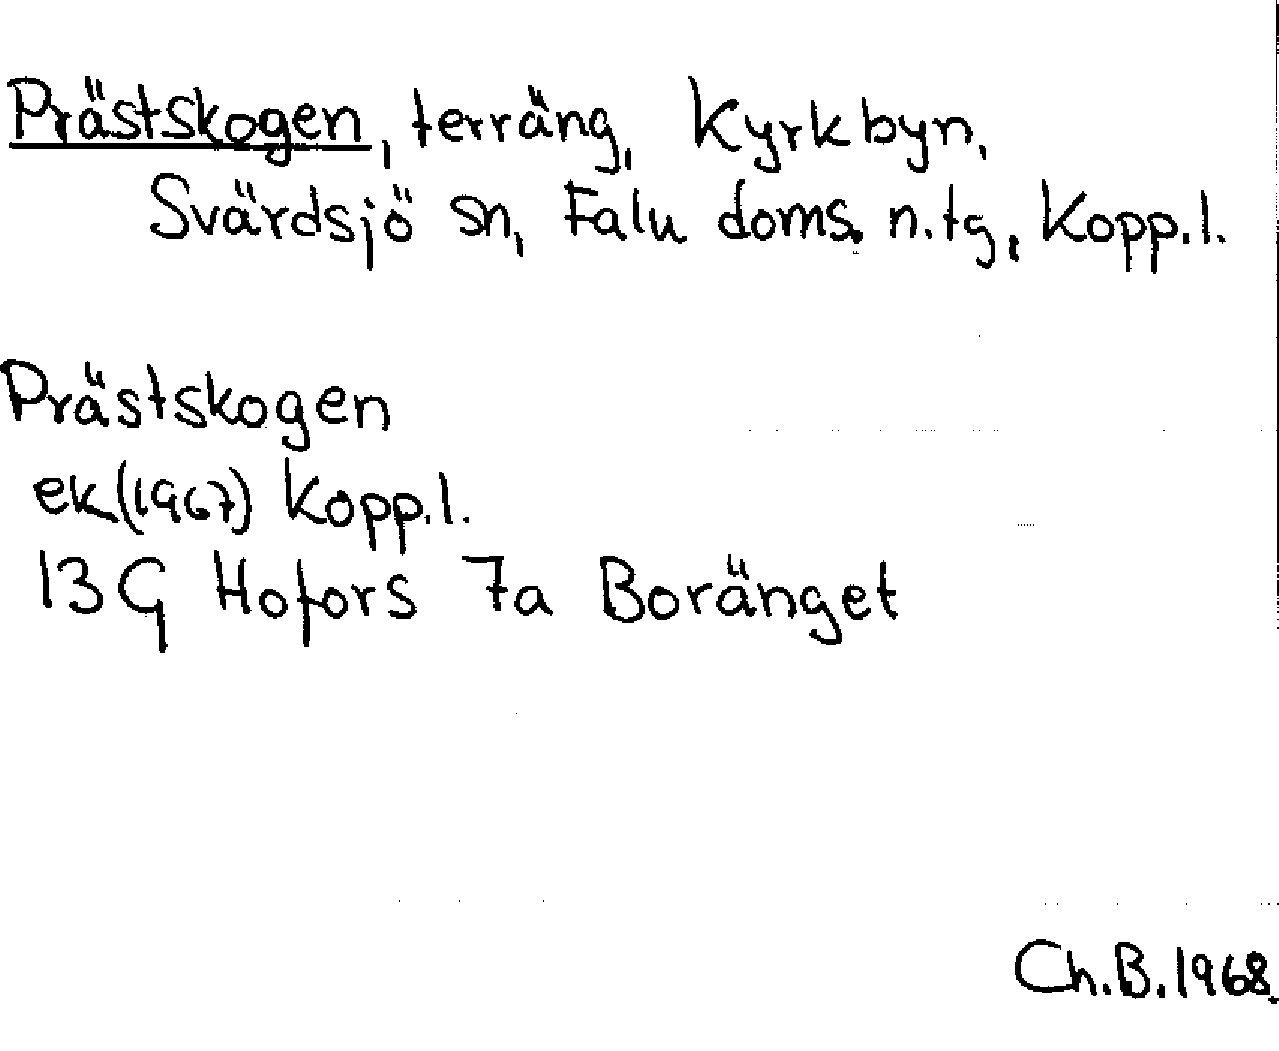 Prästskogen, terräng, Kyrkbyn,
Svärdsjö sn, Falu doms. n.tg, Kopp.l.
Prästskogen
ek(1967) Kopp.l.
13G Hofors 7a Boränget
Ch.B.1968.